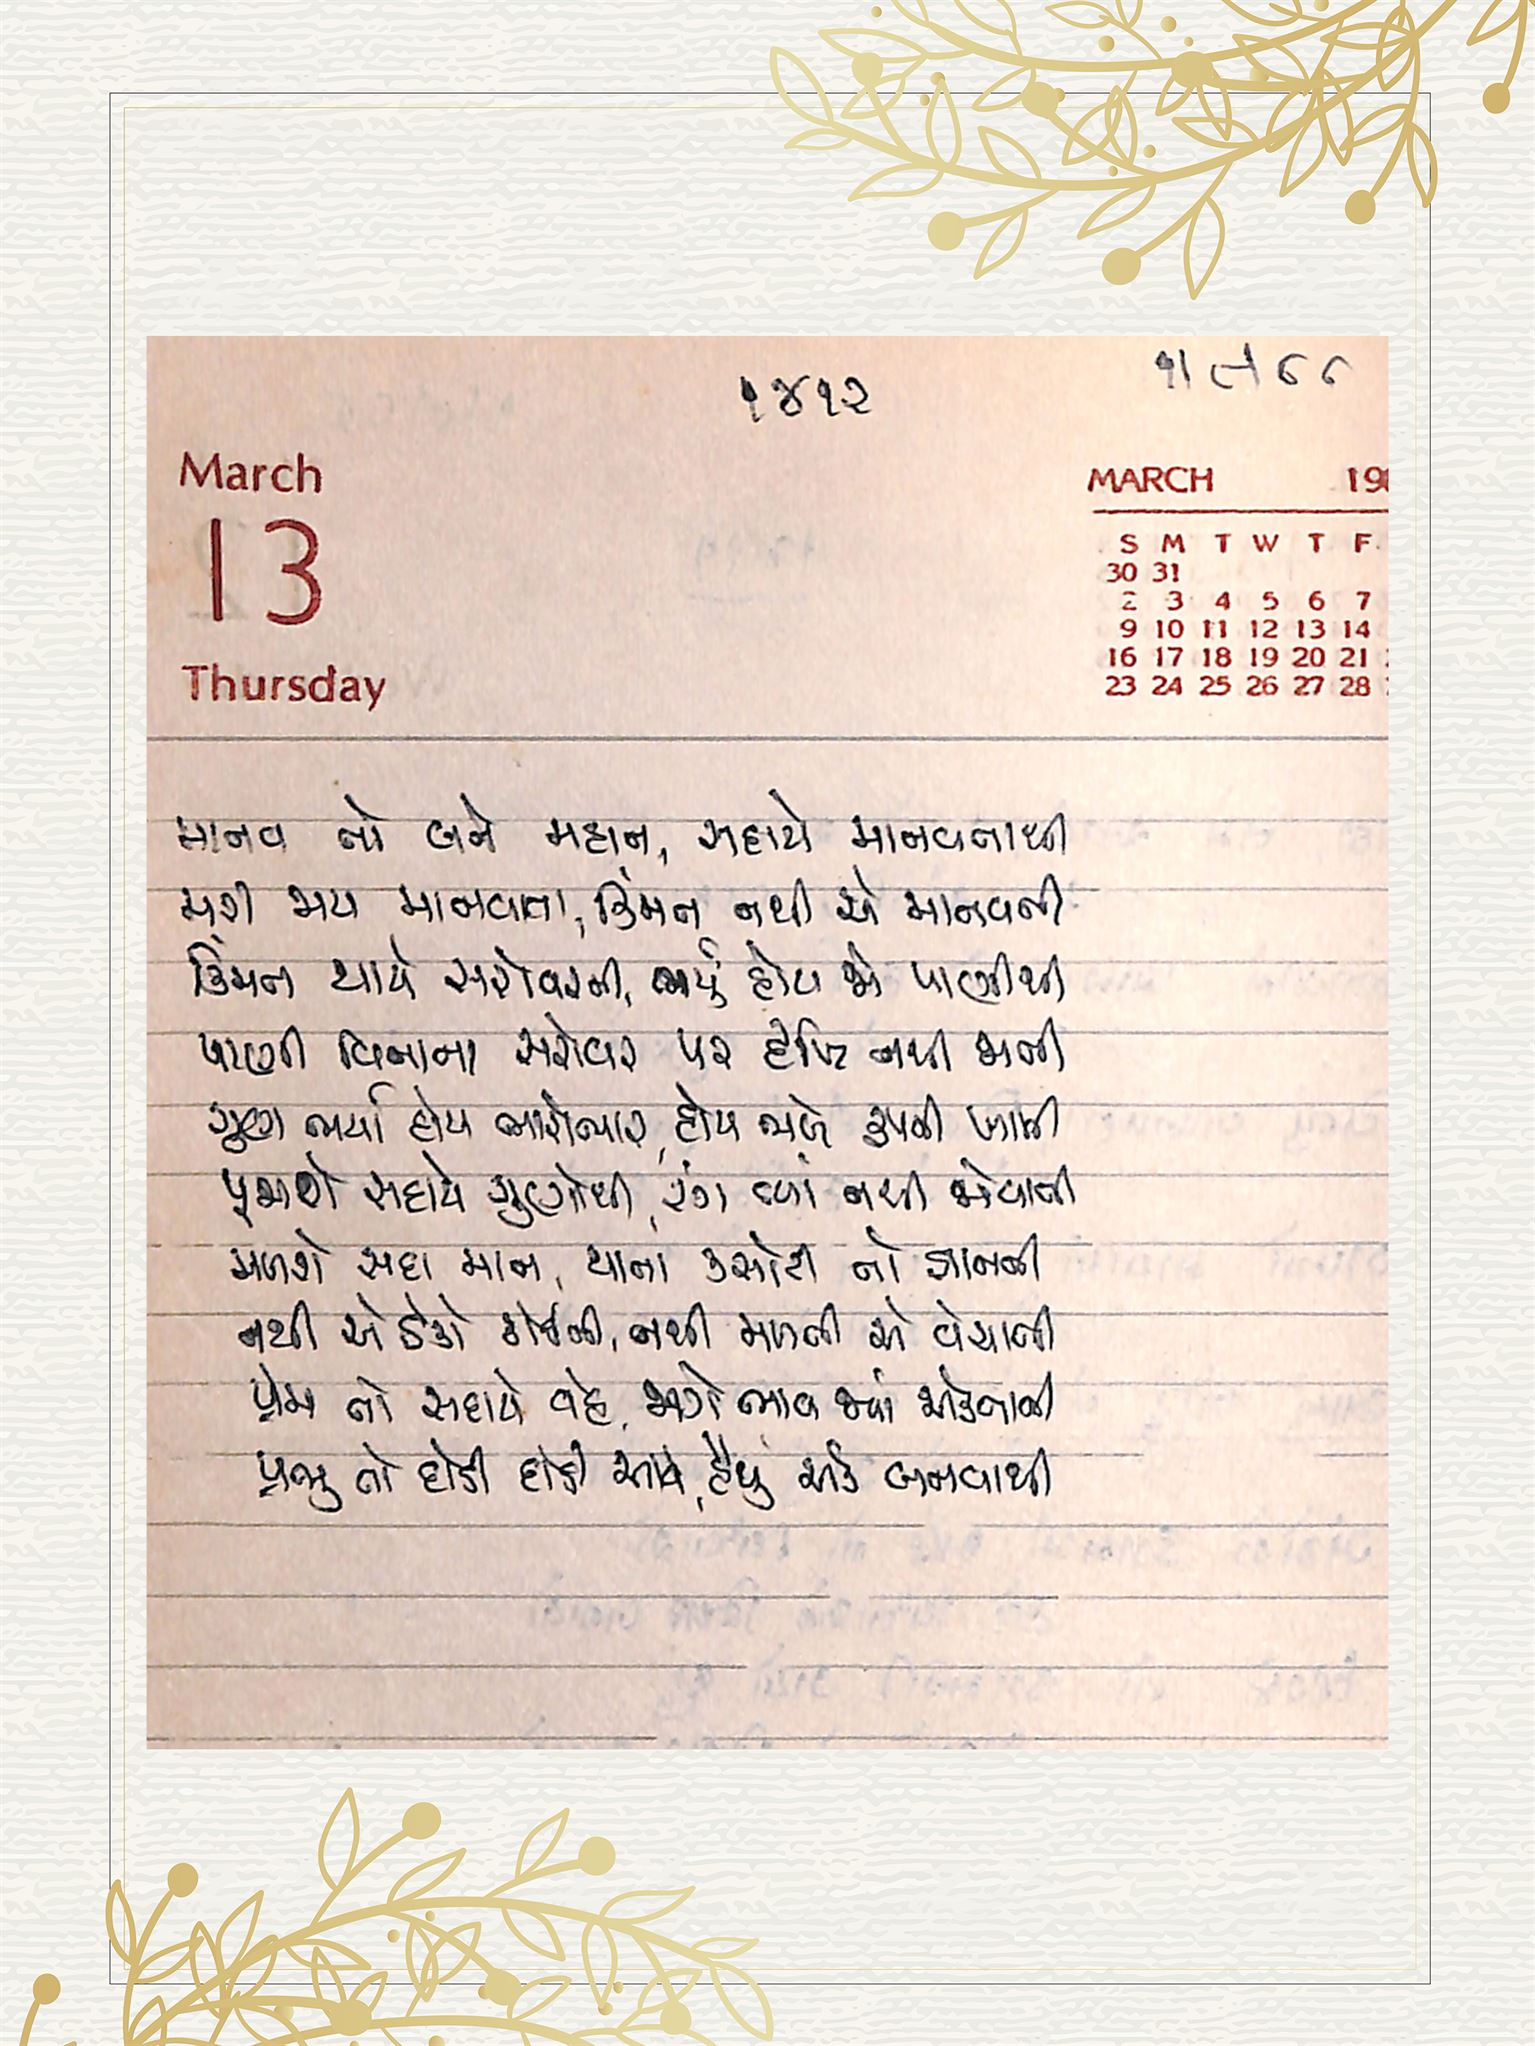 ૧૪૧૨
૧/૮/૮૮
March
13
Thursday
MARCH 19
S M T W T F
30 31
2 3 4 5 6 7
9 10 11 12 13 14
16 17 18 19 20 21
23 24 25 26 27 28
માનવ તો બને મહાન, સદાયે માનવતાથી
મરી જાય માનવતા, કિંમત નથી એ માનવની
કિંમત થાયે સરોવરની, ભર્યું હોય જો પાણીથી
પાણી વિનાના સરોવર પર દૃષ્ટિ નથી જાતી
ગુણ ભર્યા હોય ભારોભાર, હોય ભલે રૂપની ખામી
પૂજાશે સદાયે ગુણોથી, રંગ ત્યાં નથી જોવાતી
મળશે સદા માન, થાતાં કસોટી તો જ્ઞાનની
નથી એ ઠેકો કોઈની, નથી મળતી એ વેચાતી
પ્રેમ તો સદાયે વહે, જાગે ભાવ જ્યાં એકતાની
પ્રભુ તો દોડી દોડી આવે, હૈયું એક બનવાથી